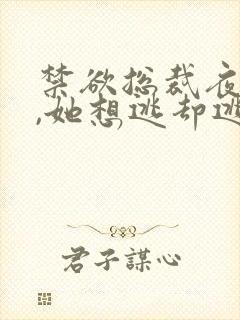 禁欲总裁夜
,她想逃却逃
君子謀心